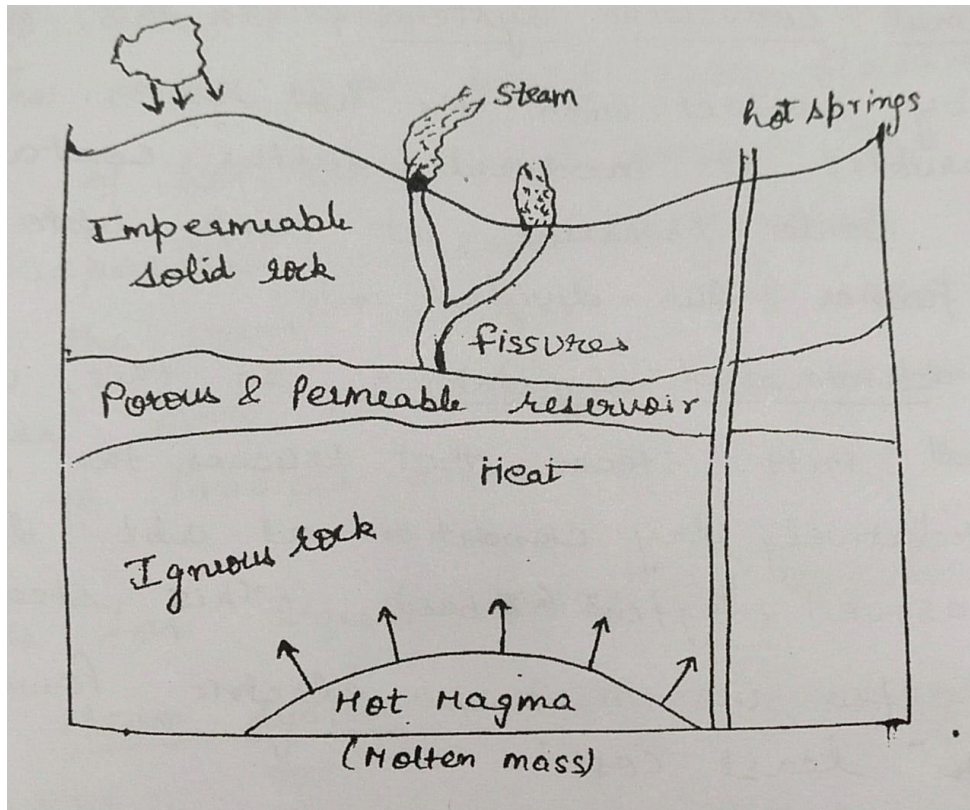 Steam
hot springs
Impermeable
solid rock
fissures
Porous & Permeable reservoir
Heat
Igneous rock
Hot Magma
(Molten mass)